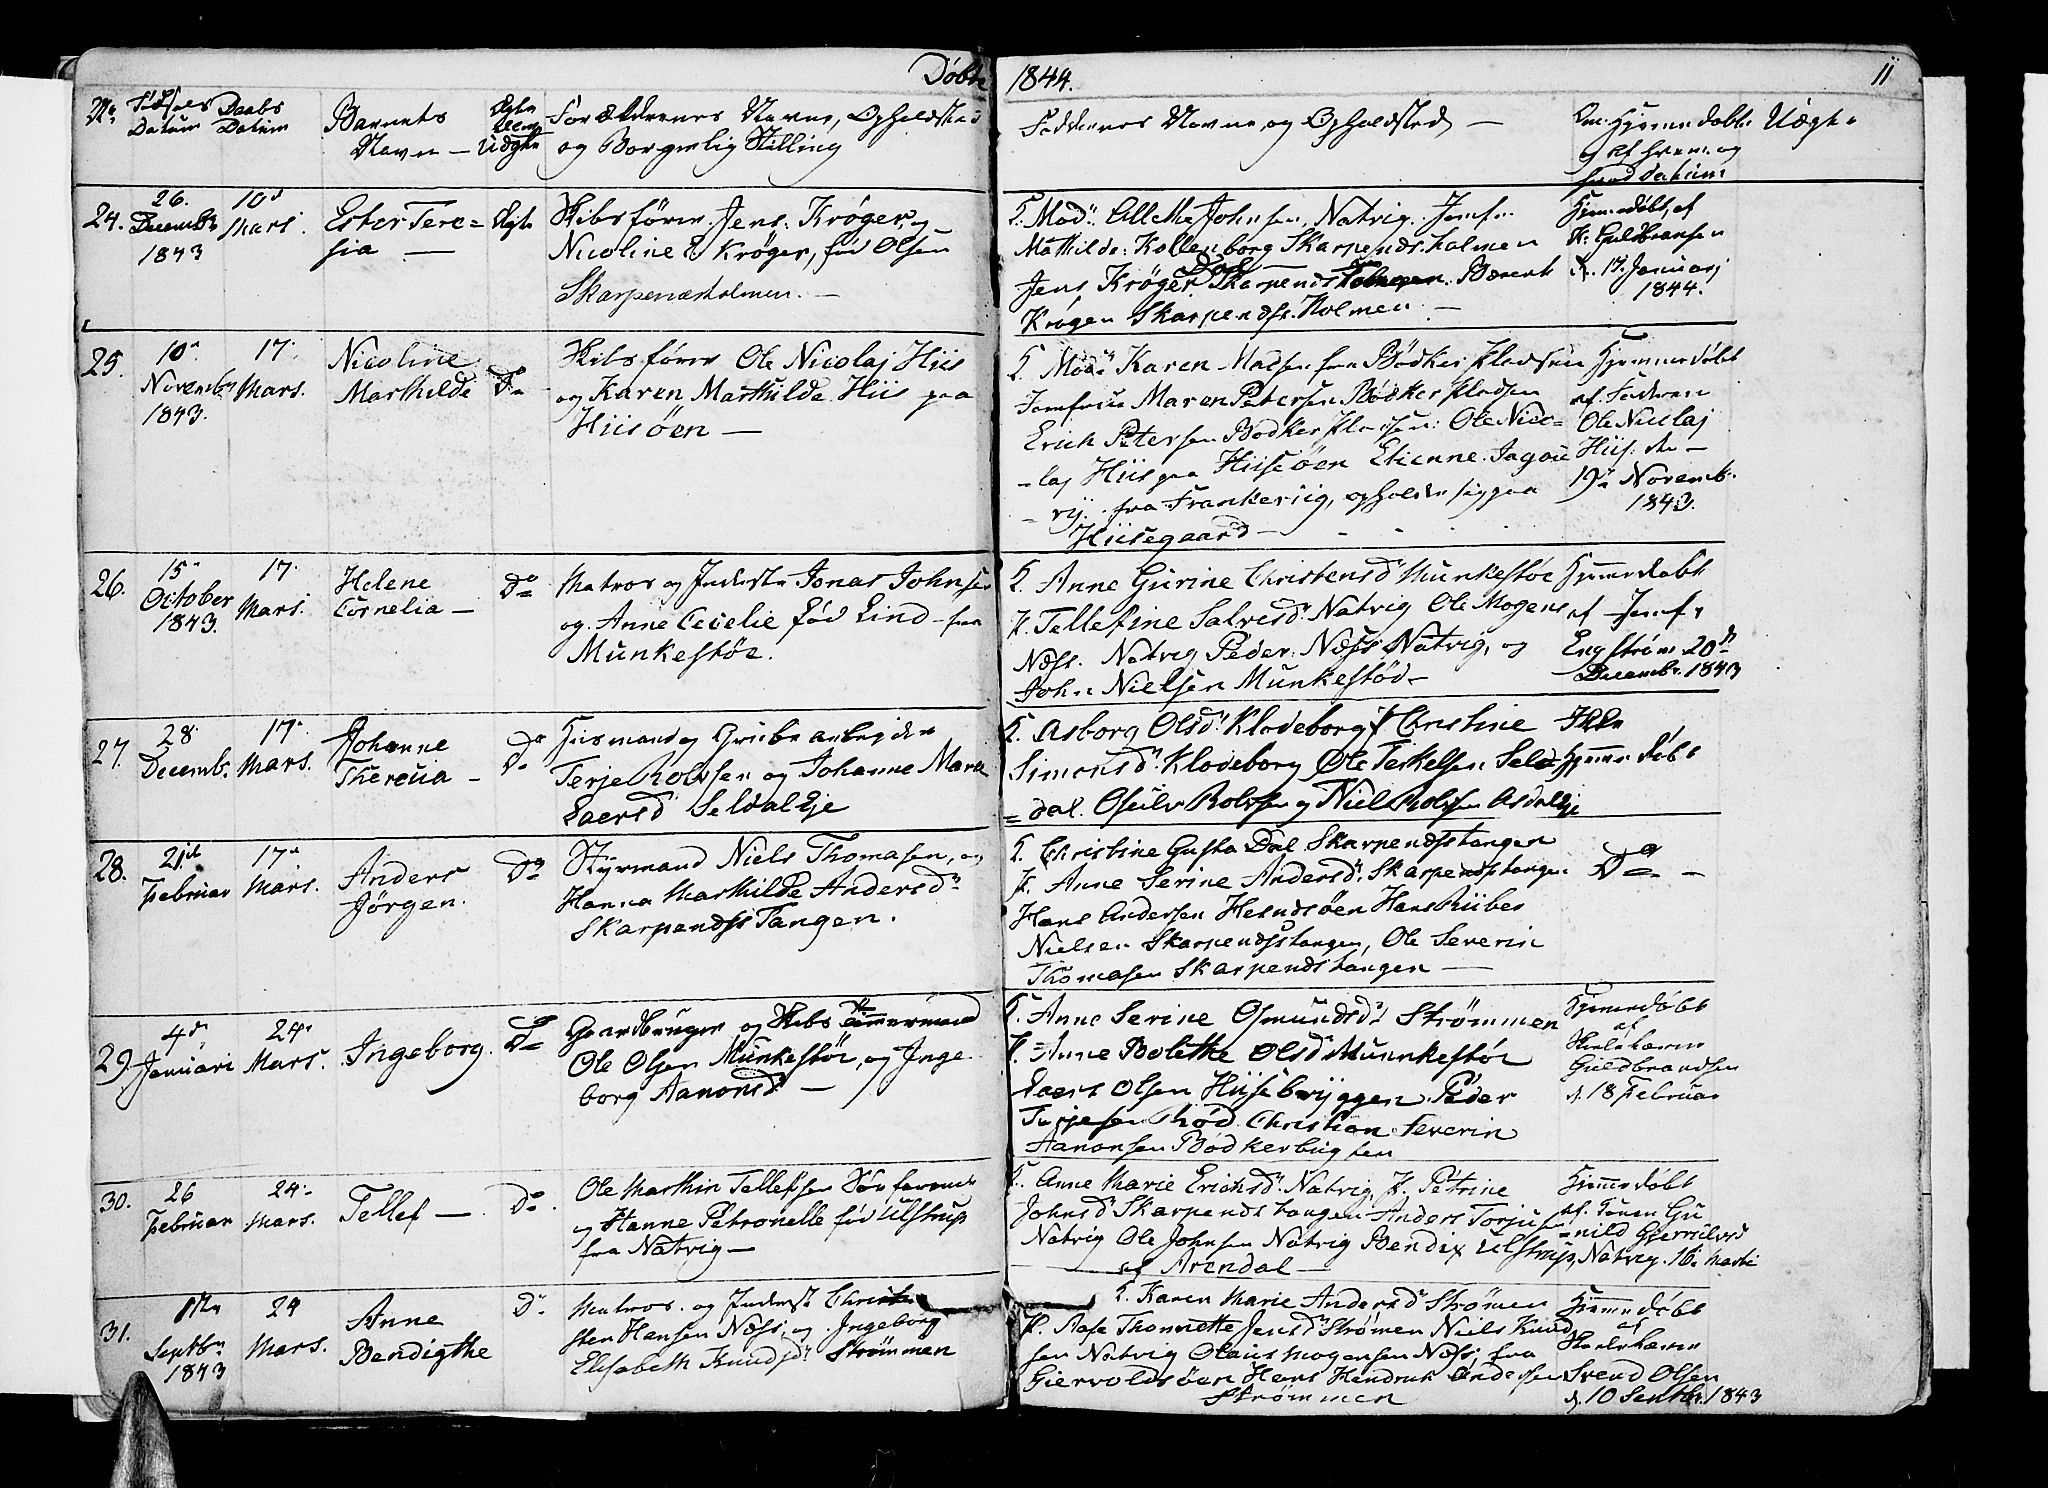 Døbte 1844. 11
No Fødsels Datum Daabs Datum Barnets Navn — Ægte eller Uægte Forældrenes Navne, Opholdsted
og Borgerlig Stilling
Faddernes Navne og Opholdsted —
Om Hjemmedøbt
og af hvem og
hvad datum
Uægte
24. 26. Decembr 1843
10d Mars.
Ester Tere=
sia —
Ægte
Skibsfører Jens Krøger, og
Nicoline Krøger, fød Olsen
Skarpenæsholmen. —
Allethe Johnsen Natvig. Jomf.
Mathilde Kallenborg Skarpendsholmen
Jens Krøger Skarpends Berent
Krøgen Skarpendss. Holmen —
Hjemmedøbt af
K: Guldbransen
d. 17. Januarj
1844.
25. 10 Novembr 1843.
17. Mars.
Nicoline
Marthilde
Do
Skibsfører Ole Nicolaj Hiis
og Karen Marthilde Hiis paa
Hiisöen —
Karen Madsen fra Bödker Pladsen
Jomfrue Maren Petersen Bödker Pladsen
Erich Petersen Bodker Pladsen: Ole Nico=
=laj Hiis paa Hiisöen Etienne Jagou
fra Frankeriig, opholder sig paa
Hiisegaard —
Hjemmedöbt
af Faderen
Ole Nicolaj
Hiis. den —
19de Novemb.
1843.
26. 15 October 1843.
17. Mars.
Helene
Cornelia —
Do
Matros og Inderste Jonas Johnsen
og Anne Cecelie fød Lind — fra
Munkestøe.
Anne Gurine Christensd Munkestøe
Tellefine Salvesd Natvig Ole Mogens
Næss. Natvig Peder Næss Natvig, og
John Nielsen Munkestöd —
Hjemmedøbt
af Jomfr
Engström 20d
Decembr. 1843
27. 28 Decemb.
17 Mars.
Johanne
Theresia —
Do
Huusmand og Grubearbejder
Terje Rolvsen og Johanne Marie
Laersd Seldal Eje
Asborg Olsd. Klodeborg Christine
Simonsd. Klodeborg Ole Terkelsen Sel=
=dal. Osulv Rolvsen og Niels Rolvsen Asdal Eje
Ikke
Hjemmedøbt
28. 21de Februar
17d Mars.
Anders
Jörgen.
Do
Styrmand Niels Thomasen, og
Hanna Marthilde Andersd
Skarpendss Tangen.
Christine Gusta Dal Skarpendsstangen
Anne Serine Andersd. Skarpendsstangen
Hans Andersen Hesndsöen Hans Riiber
Nielsen Skarpendsstangen, Ole Severin
Thomasen Skarpendstangen —
Do —
29. 4d Januari
24 Mars.
Ingeborg.
Do
Gaardbruger og Skibs Tømmermand
Ole Olsen Munkestöe, og Inge
borg Aanonsd —
Anne Serine Osmundsd Strömmen
Anne Bolethe Olsd Munnkestöe
Laers Olsen Hiisebryggen Peder
Terjesen Röd. Christian Severin
Aanonsen Bødkerbugten
Hjemmedøbt
af
Skolelærer
Guldbrandsen
d. 18 Februar
30. 26 Februar
24 Mars.
Tellef —
Do
Ole Marthin Tellefsen Søefarende
og Hanne Petronelle fød Ulstrup
fra Natvig —
Anne Marie Erichsd. Natvig, Petrine
Johnsd Skarpendstangen Anders Torjus
Natvig Ole Johnsen Natvig Bendix Ulstrup,
af Arendal —
Hjemmedøbt
af. Konen Gu
=nild Gjerulvsd
Natvig. 16 Marti
31. Septbr 1843
24 Mars.
Anne
Bendigthe
Do
Matros. og Inderst Chri
sten Hansen Næss, og Ingeborg
Elisabeth Knudsd Strömmen
Karen Marie Andersd Strömen
Aase Thonnette Jensd Strömen Niels Knud
sen Natvig Olaus Mogensen Næss: fra
Giervoldsöen Hans Hendrik Andersen
Strömmen
Hjemmedöbt
af
Skolelærer
Svend Olsen
d. 10 Septbr. 1843